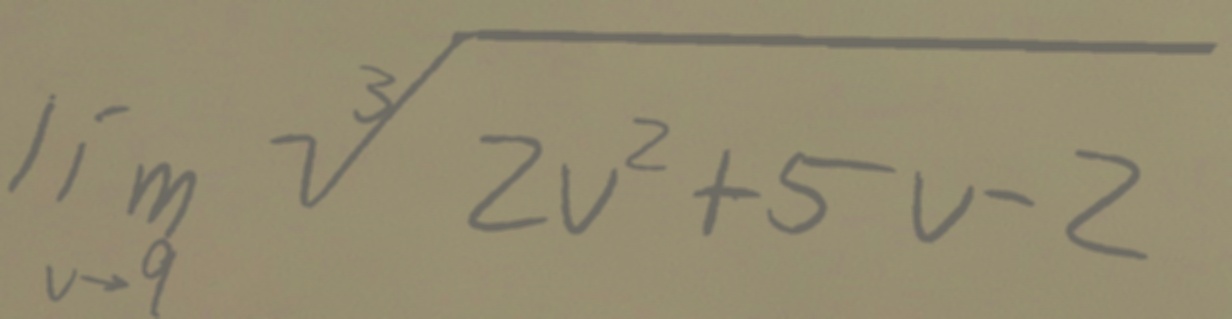 \lim_{v \to 9} \sqrt[3]{2v^2+5v-2}